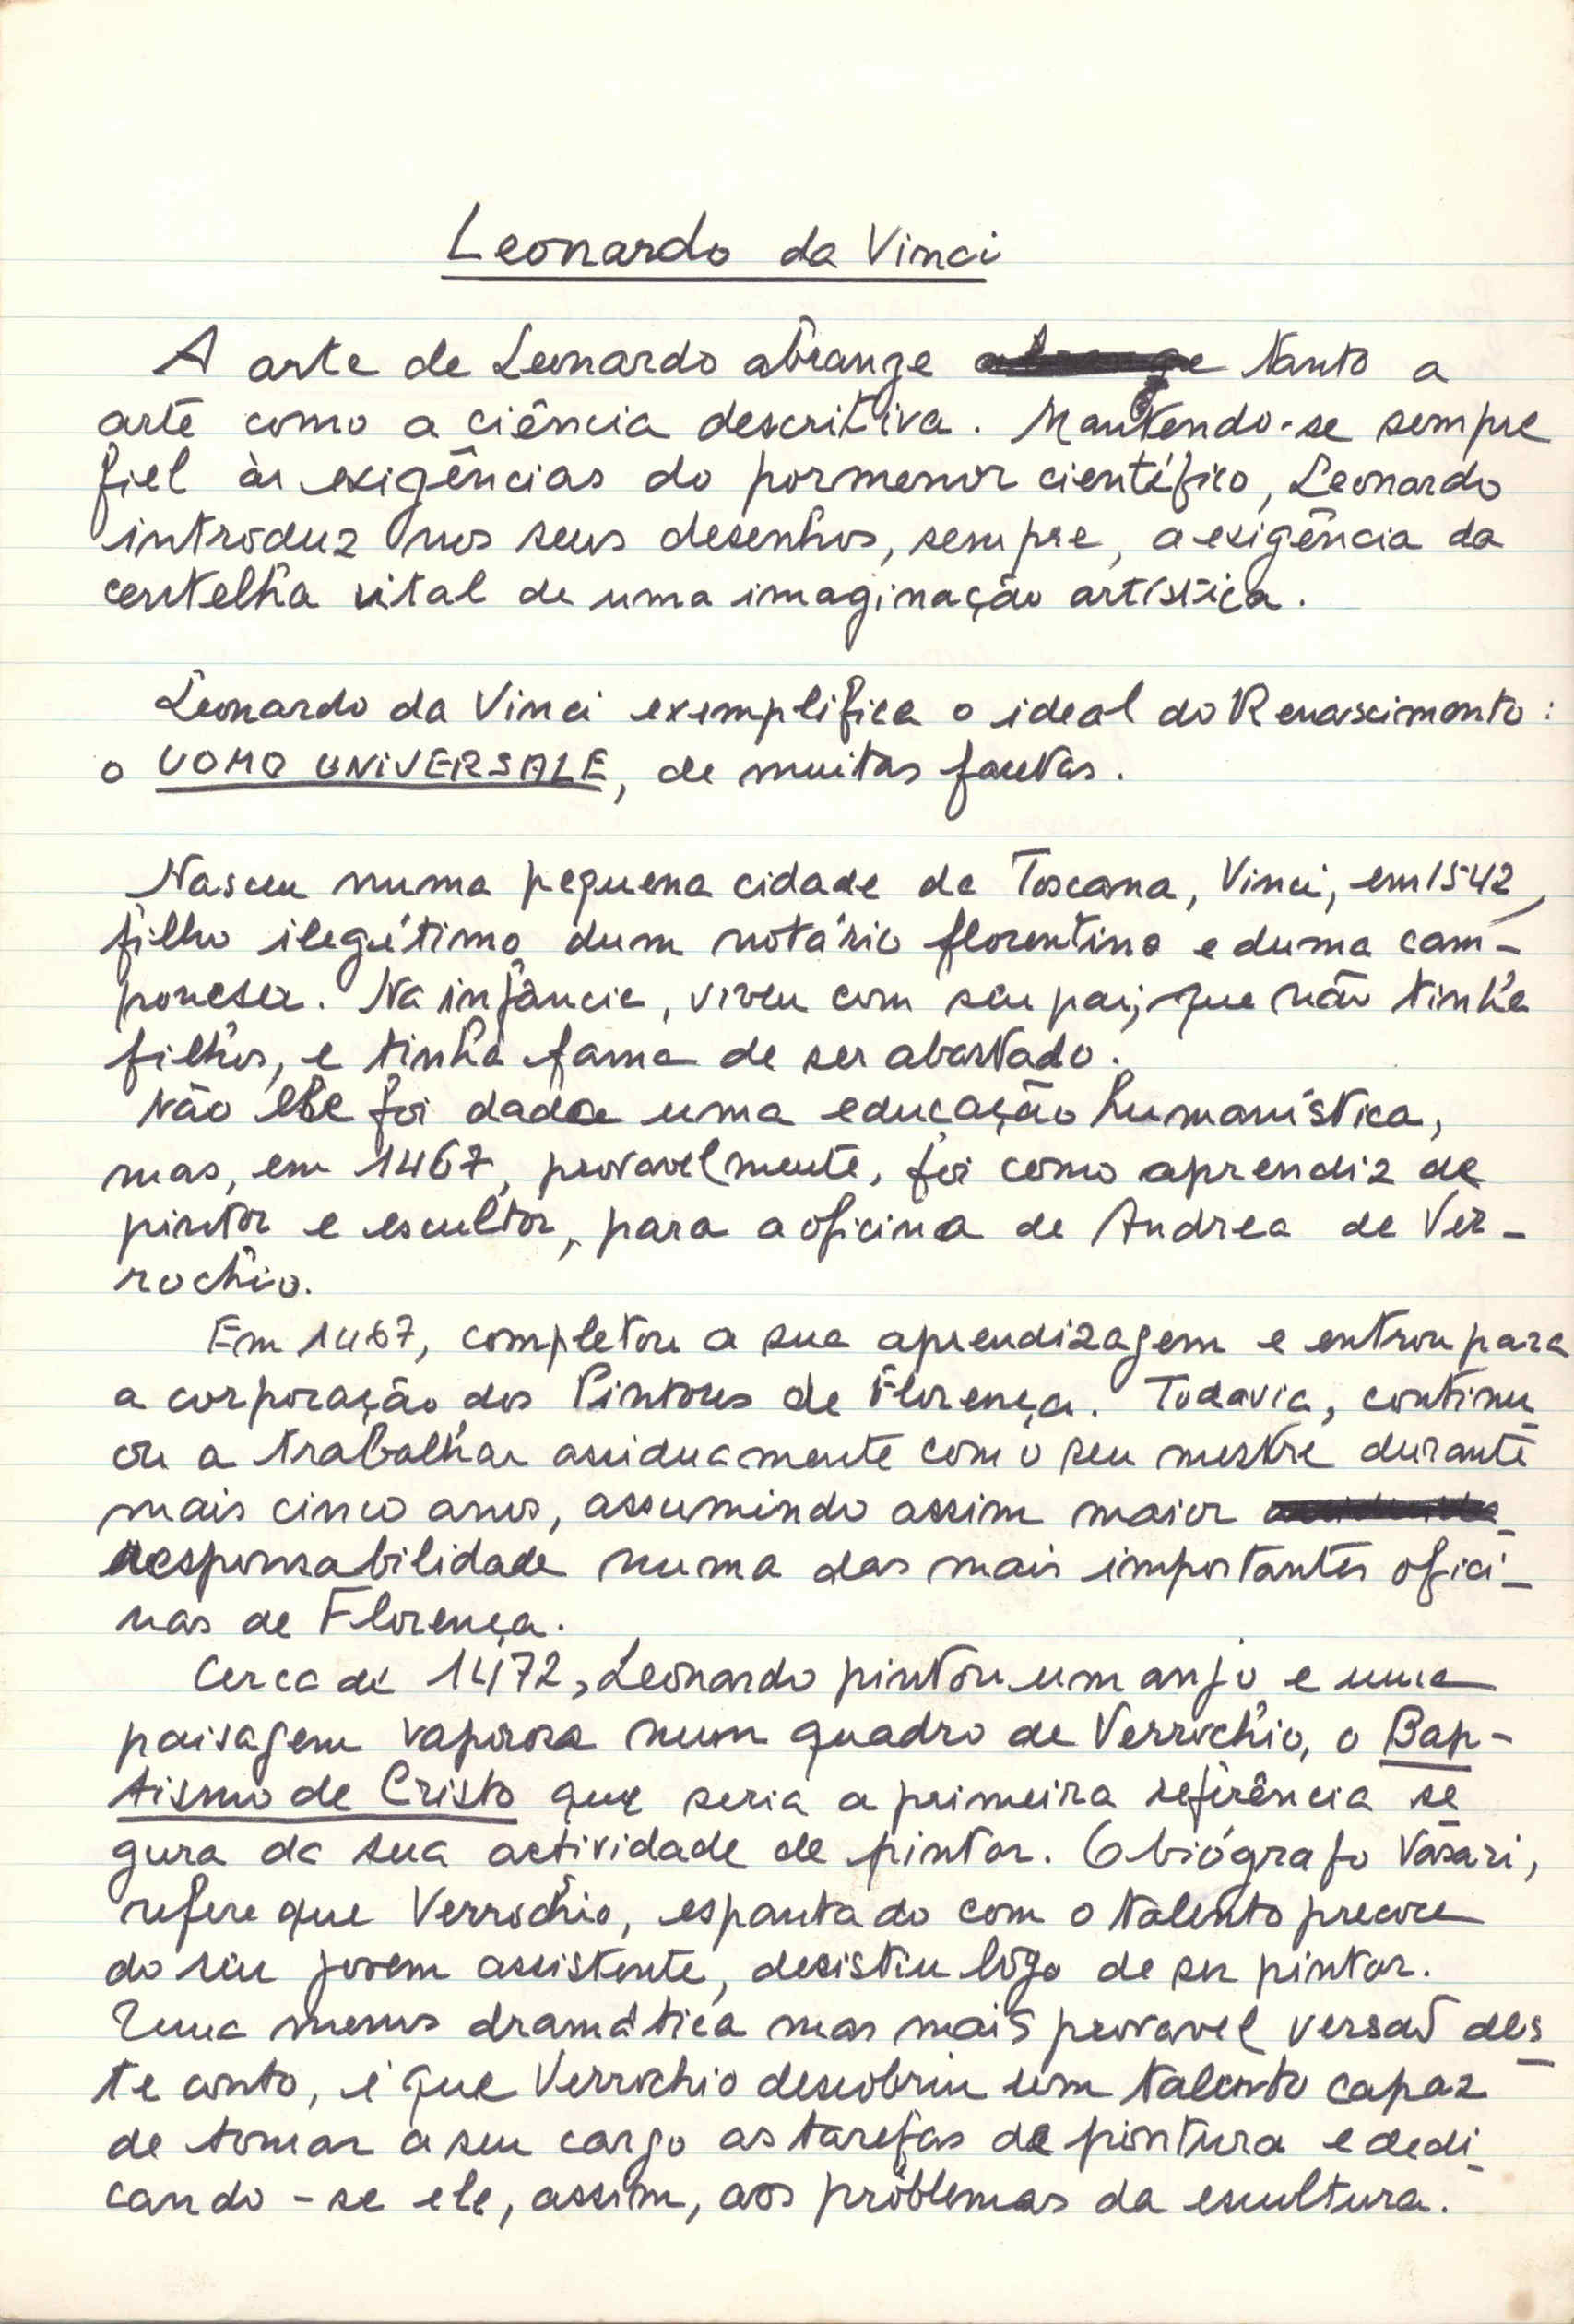 Leonardo da Vinci
A arte de Leonardo abrange tanto a
arte como a ciência descritiva. Mantendo-se sempre
fiel às exigências do pormenor científico, Leonardo
introduz nos seus desenhos, sempre, a exigência da
centelha vital de uma imaginação artística.
Leonardo da Vinci exemplifica o ideal do Renascimento:
o UOMO UNIVERSALE, de muitas facetas.
Nasceu numa pequena cidade da Toscana, Vinci, em 1542,
filho ilegítimo dum notário florentino e duma cam-
ponesa. Na infância, viveu com seu pai, que não tinha
filhos, e tinha fama de ser abastado.
Não lhe foi dada uma educação humanística,
mas, em 1467, provavelmente, foi como aprendiz de
pintor e escultor, para a oficina de Andrea de Ver-
rochio.
Em 1467, completou a sua aprendizagem e entrou para
a corporação dos Pintores de Florença. Todavia, continu
ou a trabalhar assiduamente com o seu mestre durante
mais cinco anos, assumindo assim maior
responsabilidade numa das mais importantes ofici-
nas de Florença.
Cerca de 1472, Leonardo pintou um anjo e uma
paisagem vaporosa num quadro de Verrochio, o Bap-
tismo de Cristo que seria a primeira referência se
gura da sua actividade de pintor. O biógrafo Vasari,
refere que Verrochio, espantado com o talento precoce
do seu jovem assistente, desistiu logo de ser pintor.
Uma menos dramática mas mais provavel versão des
te conto, é que Verrochio descobriu um talento capaz
de tomar a seu cargo as tarefas de pintura e dedi
cando-se ele, assim, aos problemas da escultura.